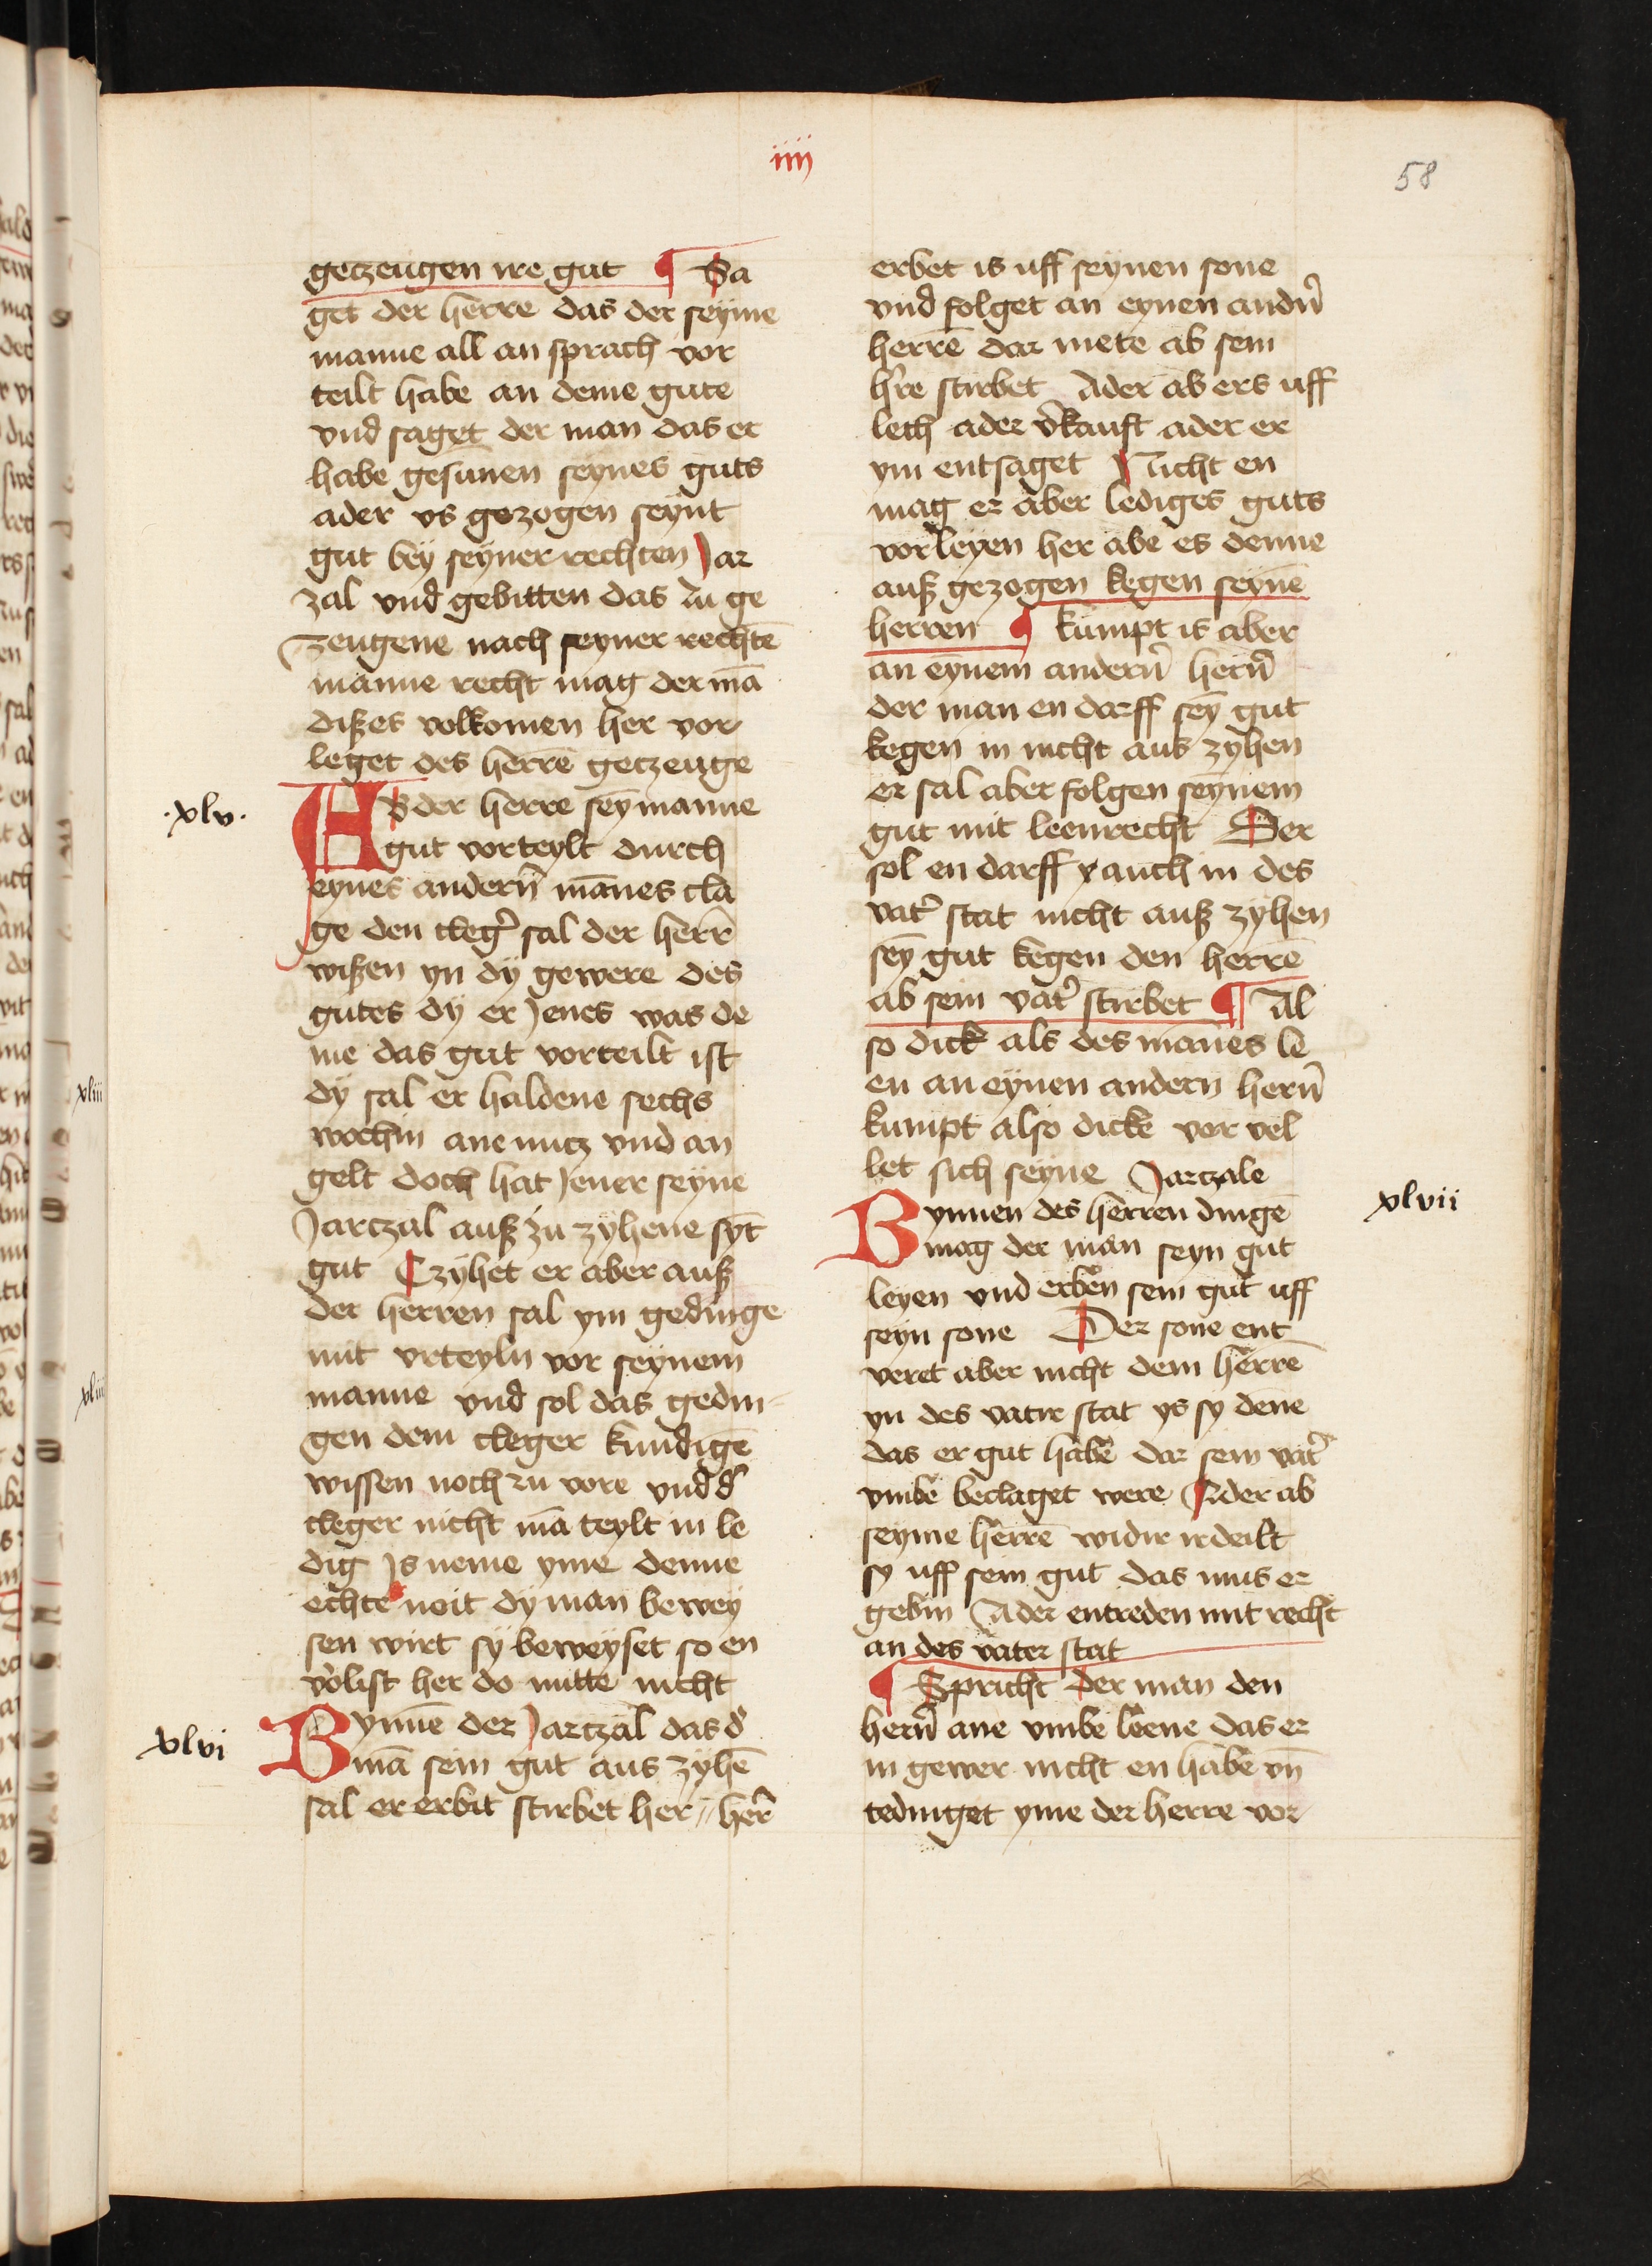 iiij
58
getzeugen ire gut ¶ Sa
get der herre das der seyme
manne all an sprach vor
teilt habe an deme gute
vnd saget der man das er
habe gesunen seynes guts
ader vs gezogen seynt
gut bey seyner rechten Jar
zal vnd gebitten das zu ge
zeugene nach seyner rechtē
manne recht mag der mā
dißes volkomen her vor
leget des herrē getzeuge
·xlv·
Ab der herre sey manne
gut vorteylt durch
eynes andern̄ mānes cla
ge den cleg̾ sal der herr̄
wißen yn dy gewere des
gutes dy er Jenes was de
me das gut vorteilt ist
dy sal er haldene sechs
wochin ane nutz vnd an
gelt doch hat Jener seyne
Jartzal auß zu zyhene syt̄
gut Czyhet er aber auß
der herren sal ym gedinge
mit vrteyln vor seynem
manne vnd sol das gedin
gen dem cleger kundigē
wissen noch zu vore vnd d̾
cleger nicht mā teylt in le
dig Js neme yme denne
echte noit dy man bewey
sen wirt sy beweyset so en
v̾list her do mitte nicht
xlvi
Bynnē der Jartzal das d̾
mā sein gut aus zyhē
sal er erbit stirbet her // her̄
erbet is uff seynen sone
vnd folget an eynen andn̾
herrē dar mete ab sein
h̾re stirbet Ader ab ers uff
lech ader v̾kauft ader er
ym entsaget Nicht en
mag er aber lediges guts
vorleyen her abe es denne
auß gezogen kegen seynē
herren ¶ kumpt is aber
an eynem andern̾ hern̾
der man en darff sey gut
kegen in nicht aus zyhen
er sal aber folgen seynem
gut mit leenrecht Der
sol en darff auch in des
vat̾ stat nicht auß zyhen
sey gut kegen den herrē
ab sein vat̾ stirbet ¶ Al
so dick als des manēs le
en an eynen andern hern̾
kumpt also dicke vor vel
let sich seyne Jartzale
xlvii
Bynnen des herren dingē
mag der man seyn gut
leyen vnd erben sein gut uff
seyn sone Der sone ent
veret aber nicht dem herrē
yn des vatir stat ys sy dēne
das er gut habē dar sein vat̾
vmbe beclaget were Ader ab
seyme herrē widir irdeilt
sy uff sein gut das mus er
gebin Ader entreden mit recht
an des vater stat
¶ Spricht der man den
hern̾ ane vmbe leene das er
in gewer nicht en habe vn̄
tedinget yme der herre vor